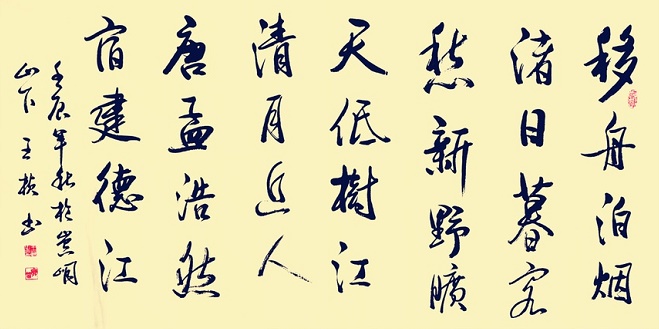 移舟泊烟
渚日暮客
愁新野曠
天低樹江
清月近人
唐孟浩然
宿建德江
壬辰年秋於嵩明
山下 王 書